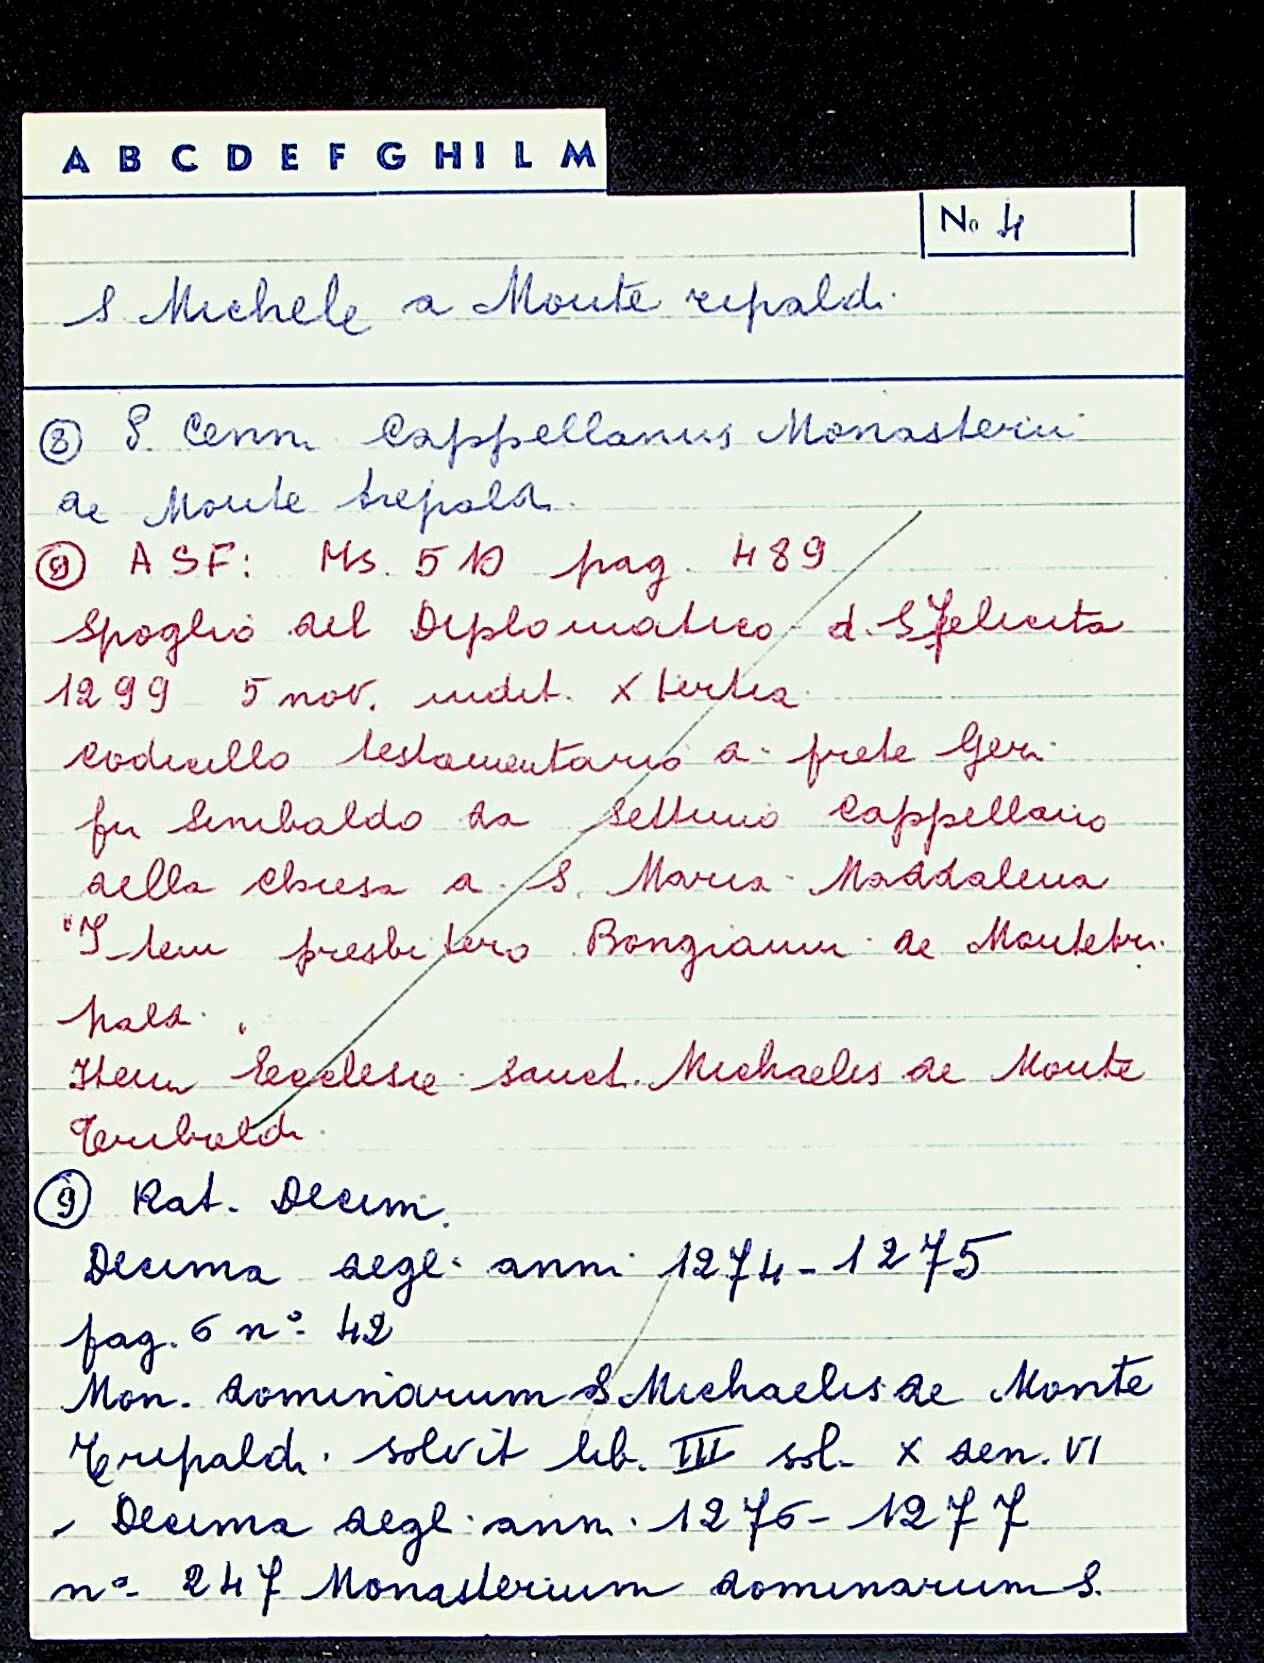 A B C D E F G H I L M
No 4
S Michele a Monte ripaldi
(8) S. Cenni Cappellanus Monasterii
de Monte trepaldi
(9) ASF: Ms. 510 pag. 489
Spoglio del Diplomatico di S Felicita
1299 5 nov. indit. X tertia
codicillo testamentario di prete Geri
fu Sinibaldo da Settimo Cappellano
della chiesa di S. Maria Maddalena
"Item presbitero Bongianni de Montetri
paldi "
Item Ecclesie Sancti Michaelis de Monte
Tribaldi
(9) Rat. Decim.
Decima degli anni 1274-1275
pag. 6 n° 42
Mon. dominarum S. Michaelis de Monte
Tripaldi solvit lib. III sol. X den. VI
, Decima degli anni 1276-1277
n° 247 Monasterium dominarum S.